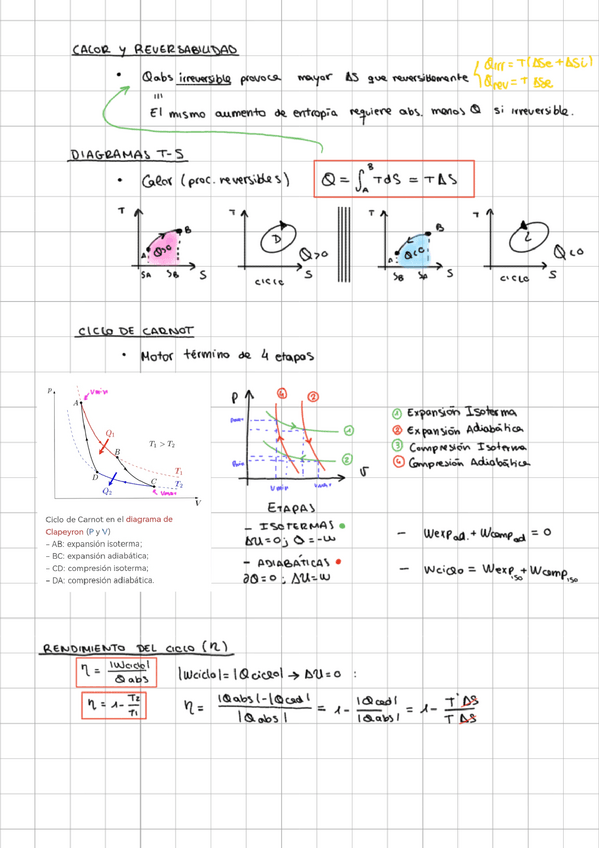 CALOR Y REVERSABILIDAD
• Qabs irreversible provoca mayor ΔS que reversiblemente { Qirr = T(ΔSe + ΔSi)
Qrev = T ΔSe
≡
El mismo aumento de entropía requiere abs. menos Q si irreversible.
DIAGRAMAS T-S
• Calor (proc. reversibles) Q = ∫_A^B TdS = TΔS
T A B Q>0 SA SB S
T D CICLO S Q>0
T A B Q<0 SB SA S
T L CICLO S Q<0
CICLO DE CARNOT
• Motor término de 4 etapas
P Vmin A Q1 B T1 > T2 D Q2 C T1 T2 Vmax V
P ④ ② Pmax Pmin ① ② Vmin Vmax V
① Expansión Isoterma
② Expansión Adiabática
③ Compresión Isoterma
④ Compresión Adiabática
Ciclo de Carnot en el diagrama de
Clapeyron (P y V)
– AB: expansión isoterma;
– BC: expansión adiabática;
– CD: compresión isoterma;
– DA: compresión adiabática.
ETAPAS
– ISOTERMAS •
ΔU=0; Q=-W
– ADIABÁTICAS •
∂Q=0; ΔU=W
– Wexp ad. + Wcomp ad = 0
– Wciclo = Wexp iso + Wcomp iso
RENDIMIENTO DEL CICLO (η)
η = |Wciclo| / Qabs |Wciclo| = |Qciclo| → ΔU=0 :
η = 1 - T2/T1 η = (|Qabs| - |Qced|) / |Qabs| = 1 - |Qced| / |Qabs| = 1 - T'ΔS / TΔS